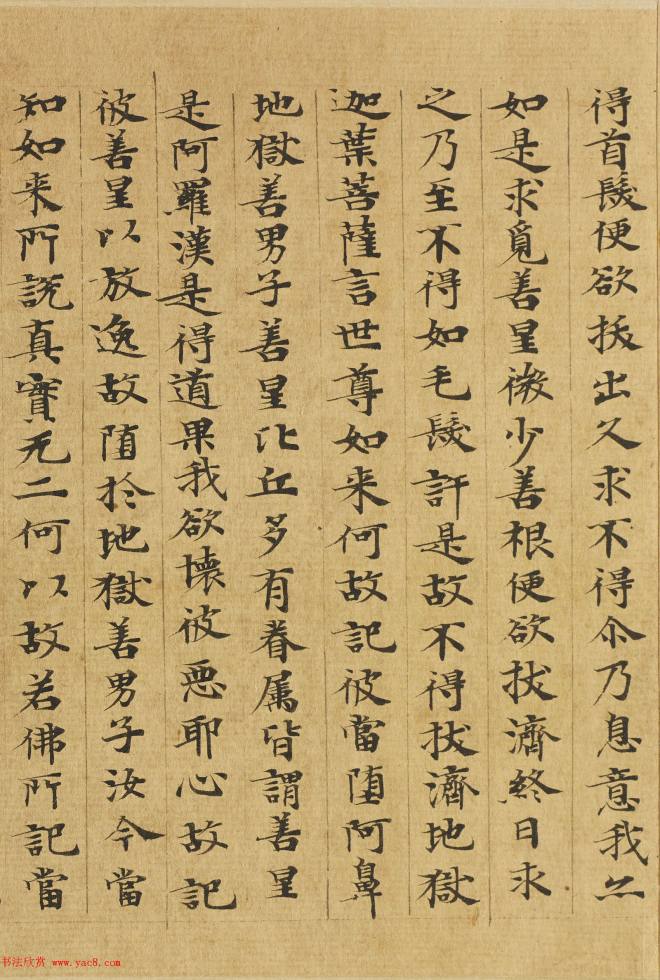 得首髮便欲拔出久求不得尒乃息意我亦
如是求覓善星微少善根便欲拔濟終日求
之乃至不得如毛髮許是故不得拔濟地獄
迦葉菩薩言世尊如来何故記彼當堕阿鼻
地獄善男子善星比丘多有眷属皆謂善星
是阿羅漢是得道果我欲壞彼惡耶心故記
彼善星以放逸故堕於地獄善男子汝今當
知如来所説真實无二何以故若佛所記當
书法欣赏 www.yac8.com